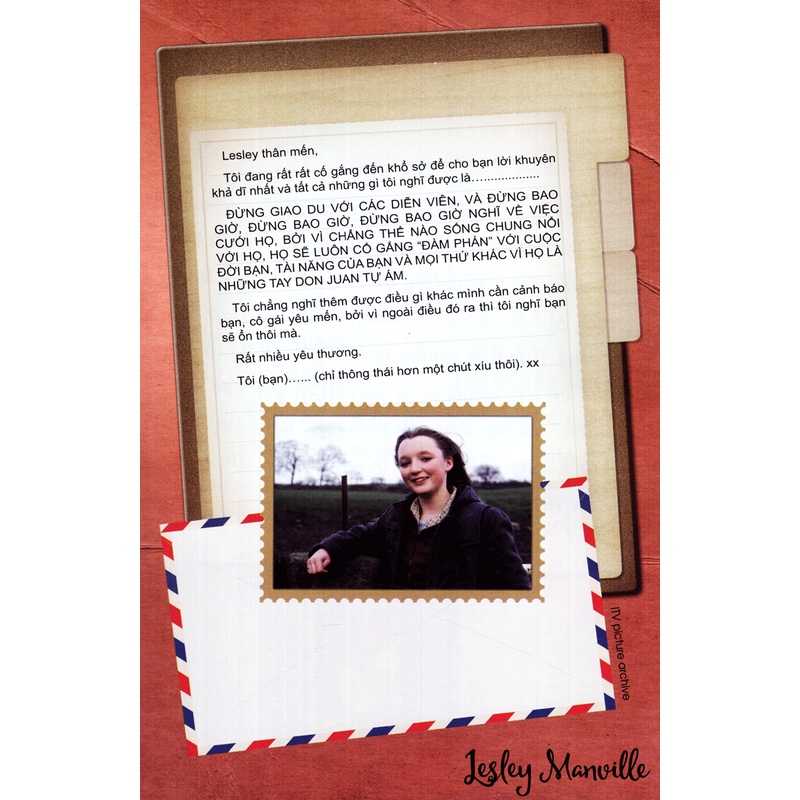 Lesley thân mến,
Tôi đang rất rất cố gắng đến khổ sở để cho bạn lời khuyên
khả dĩ nhất và tất cả những gì tôi nghĩ được là…................
ĐỪNG GIAO DU VỚI CÁC DIỄN VIÊN, VÀ ĐỪNG BAO
GIỜ, ĐỪNG BAO GIỜ, ĐỪNG BAO GIỜ NGHĨ VỀ VIỆC
CƯỚI HỌ, BỞI VÌ CHẲNG THỂ NÀO SỐNG CHUNG NỔI
VỚI HỌ, HỌ SẼ LUÔN CỐ GẮNG “ĐÀM PHÁN” VỚI CUỘC
ĐỜI BẠN, TÀI NĂNG CỦA BẠN VÀ MỌI THỨ KHÁC VÌ HỌ LÀ
NHỮNG TAY DON JUAN TỰ ÁM.
Tôi chẳng nghĩ thêm được điều gì khác mình cần cảnh báo
bạn, cô gái yêu mến, bởi vì ngoài điều đó ra thì tôi nghĩ bạn
sẽ ổn thôi mà.
Rất nhiều yêu thương.
Tôi (bạn)…... (chỉ thông thái hơn một chút xíu thôi). xx
ITV picture archive
Lesley Manville